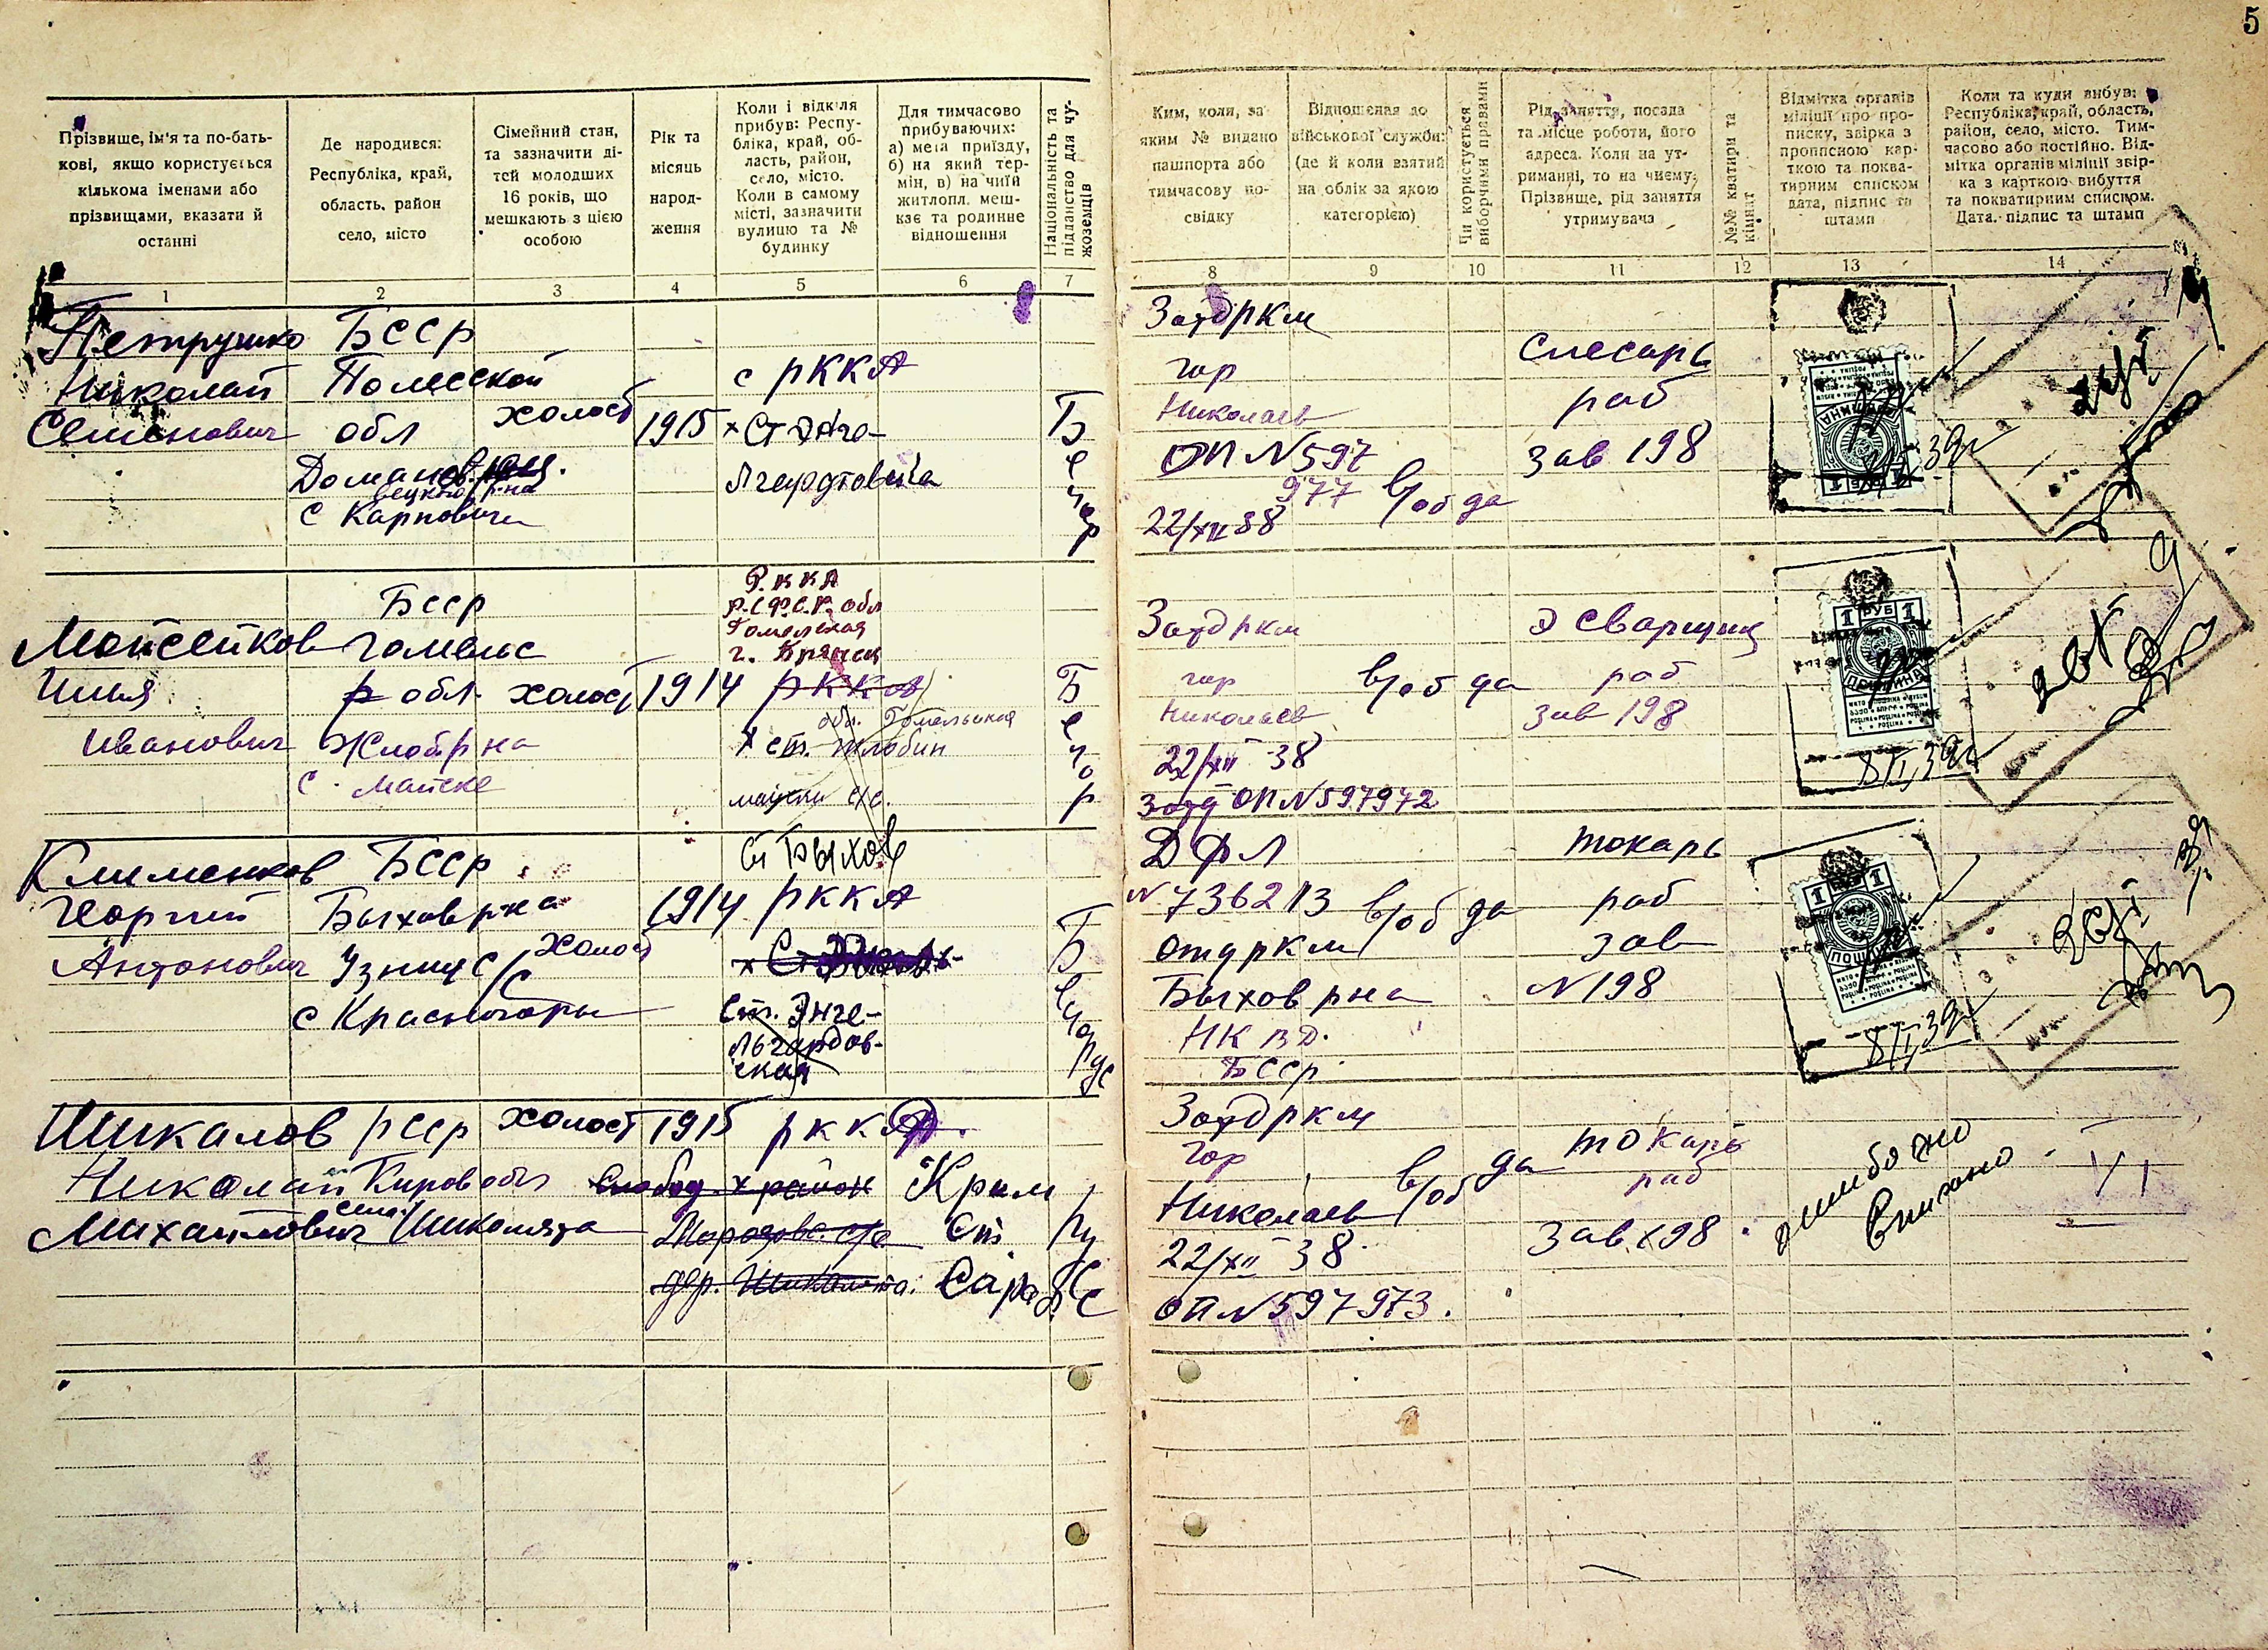 5
Прізвище, ім'я та по-бать-
кові, якщо користується
кількома іменами або
прізвищами, вказати й
останні
Де народився:
Республіка, край,
область, район
село, місто
Сімейний стан,
та зазначити ді-
тей молодших
16 років, що
мешкають з цією
особою
Рік та
місяць
народ-
ження
Коли і відкіля
прибув: Респу-
бліка, край, об-
ласть, район,
село, місто.
Коли в самому
місті, зазначити
вулицю та №
будинку
Для тимчасово
прибуваючих:
а) мета приїзду,
б) на який тер-
мін, в) на чиїй
житлопл. меш-
кає та родинне
відношення
Національність та
підданство для чу-
жоземців
Ким, коли, за
яким № видано
пашпорта або
тимчасову по-
свідку
Відношення до
військової служби:
(де й коли взятий
на облік за якою
категорією)
Чи користується
виборчими правами
Рід заняття, посада
та місце роботи, його
адреса. Коли на ут-
риманні, то на чиєму;
Прізвище, рід заняття
утримувача
№№ кватири та
кімнат
Відмітка органів
міліції про про-
писку, звірка з
прописною кар-
ткою та поква-
тирним списком
дата, підпис та
штамп
Коли та куди вибув:
Республіка, край, область,
район, село, місто. Тим-
часово або постійно. Від-
мітка органів міліції звір-
ка з карткою вибуття
та поквatирним списком.
Дата, підпис та штамп
1 2 3 4 5 6 7 8 9 10 11 12 13 14
Петрушко
Николай
Семенович
БССР
Полесской
обл
с Карповичи
холост
1915
с РККА
Белор
Зотд ркм
гор
Николаев
ОП N 597
977
22/XII 38
в/об да
слесарь
раб
зав 198
Мойсейков
Илья
Иванович
БССР
гомельс
р обл
Жлоб р на
с. Майске
холост
1914
Р.ККА
Р.С.Ф.С.Р. обл
Гомельская
г. Брянск
РККА
обл. Гомельская
х ст. Жлобин
Белор
Зотд ркм
гор
Николаев
22/XII 38
Зотд ОП N 597972
в/об да
Э сварщик
раб
зав 198
1 РУБ 1
8/I 39г
Клименков
Георгий
Антонович
БССР
Быхов р на
с Красногоры
холост
1914
ст Быхов
РККА
Ст. Энге-
льгардов-
ская
Белорус
ДФЛ
N 736213
отд ркм
Быхов р на
НКВД.
БССР
в/об да
токарь
раб
зав
N 198
8/I 39г
Шикалов
Николай
Михайлович
РССР
Киров обл
село
холост
1915
РККА
Слобод. х район
Крым
ст.
Сараб.
Рус
Зотд ркм
гор
Николаев
22/XII 38
ОП N 597973.
в/об да
токарь
раб
зав 198
ошибочно
вписано